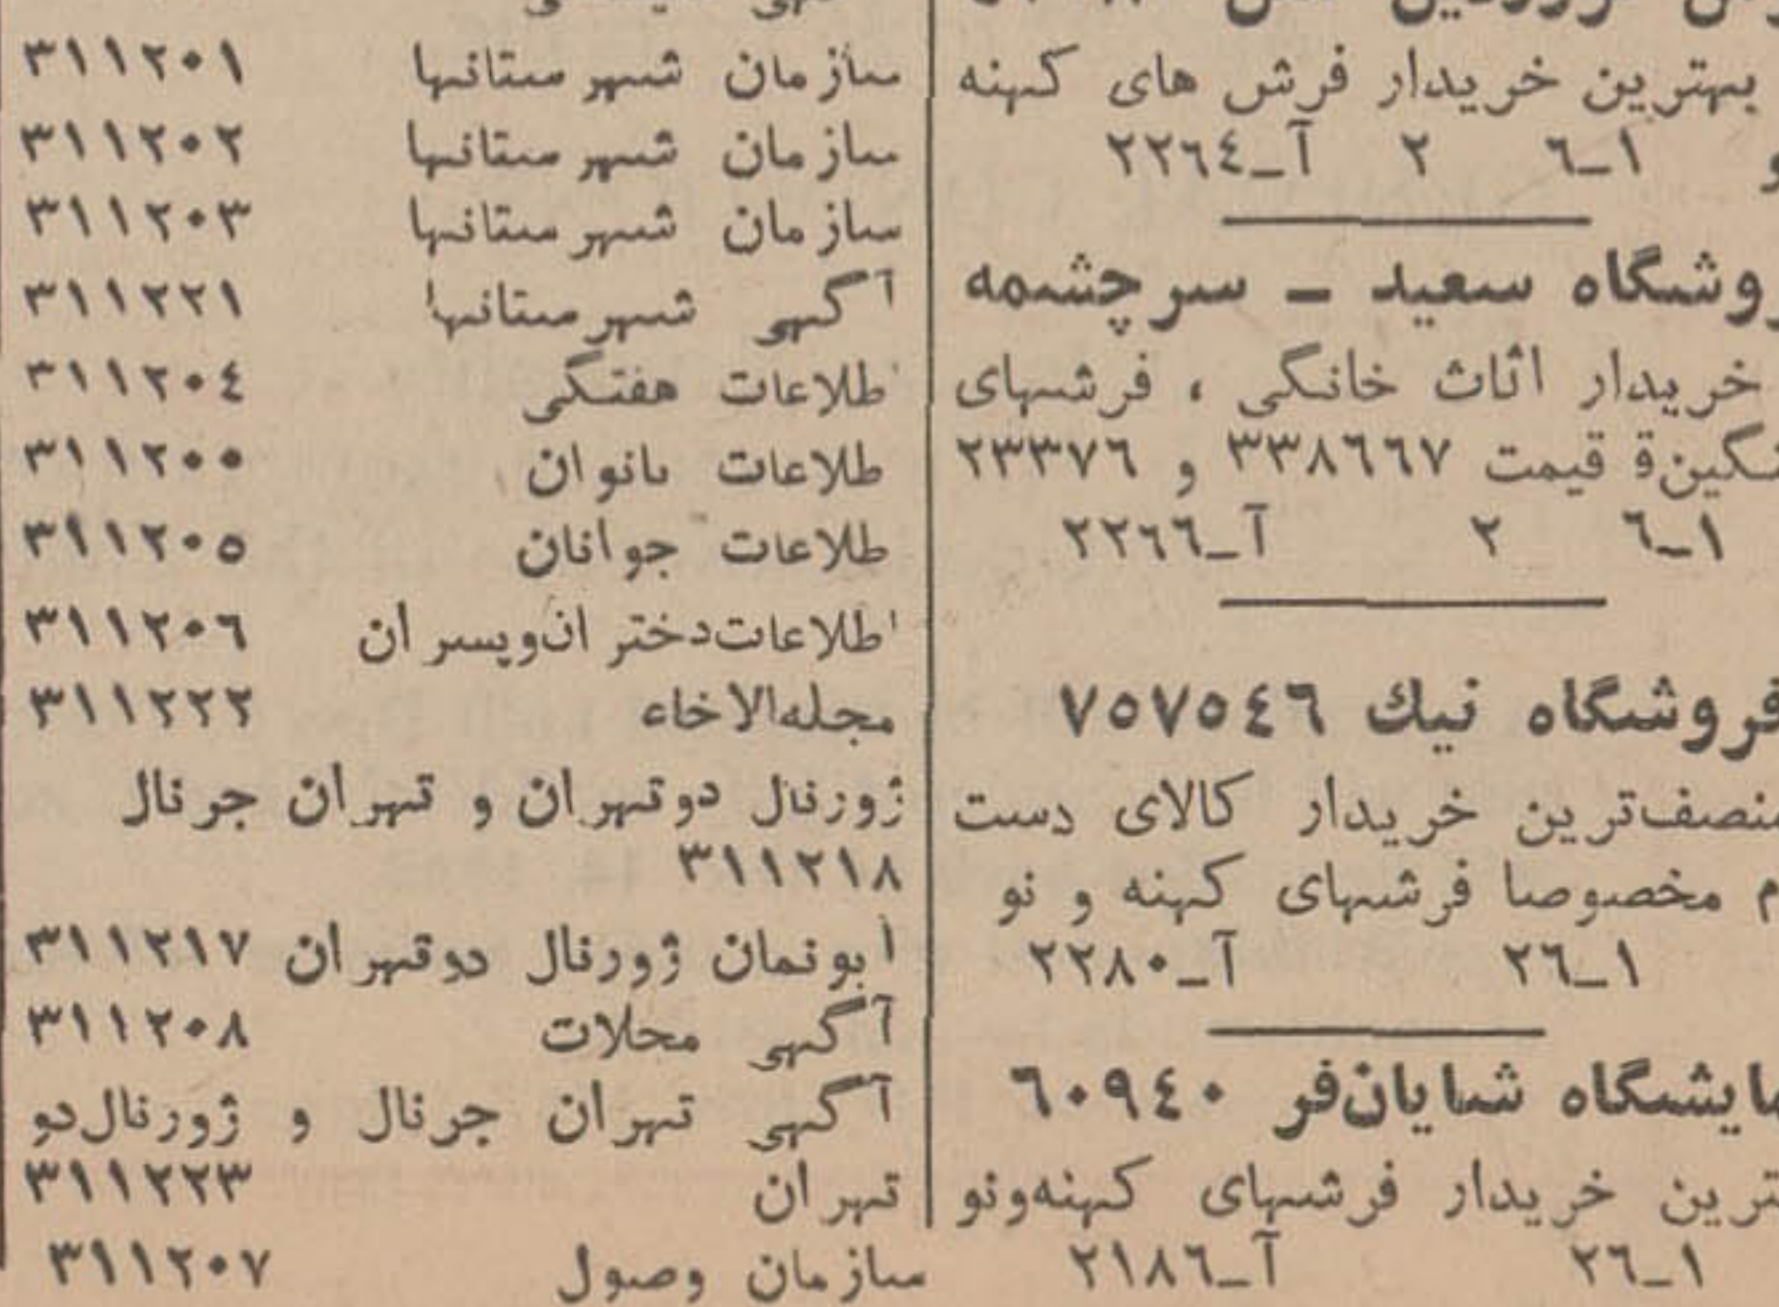 بهترین خریدار فرش های کهنه
و ۱ـ٦ ۲ آـ۲۲٦٤
وشگاه سعید ـ سرچشمه
خریدار اثاث خانگی ، فرشهای
قیمت ۳۳۸٦٦۷ و ۲۳۳۷٦
۱ـ٦ ۲ آـ۲۲٦٦
فروشگاه نیك ۷٥۷٥٤٦
منصف‌ترین خریدار کالای دست
م مخصوصا فرشهای کهنه و نو
۱ـ۲٦ آـ۲۲۸۰
مایشگاه شایان‌فر ٦۰۹٤۰
ترین خریدار فرشهای کهنه‌ونو
۱ـ۲٦ آـ۲۱۸٦
سازمان شهرستانها ۳۱۱۲۰۱
سازمان شهرستانها ۳۱۱۲۰۲
سازمان شهرستانها ۳۱۱۲۰۳
آگهی شهرستانها ۳۱۱۲۲۱
اطلاعات هفتگی ۳۱۱۲۰٤
طلاعات بانوان ۳۱۱۲۰۰
طلاعات جوانان ۳۱۱۲۰٥
اطلاعات‌دختران‌وپسران ۳۱۱۲۰٦
مجله‌الاخاء ۳۱۱۲۲۲
ژورنال دوتهران و تهران جرنال
۳۱۱۲۱۸
آبونمان ژورنال دوتهران ۳۱۱۲۱۷
آگهی محلات ۳۱۱۲۰۸
آگهی تهران جرنال و ژورنال‌دو
تهران ۳۱۱۲۲۳
سازمان وصول ۳۱۱۲۰۷